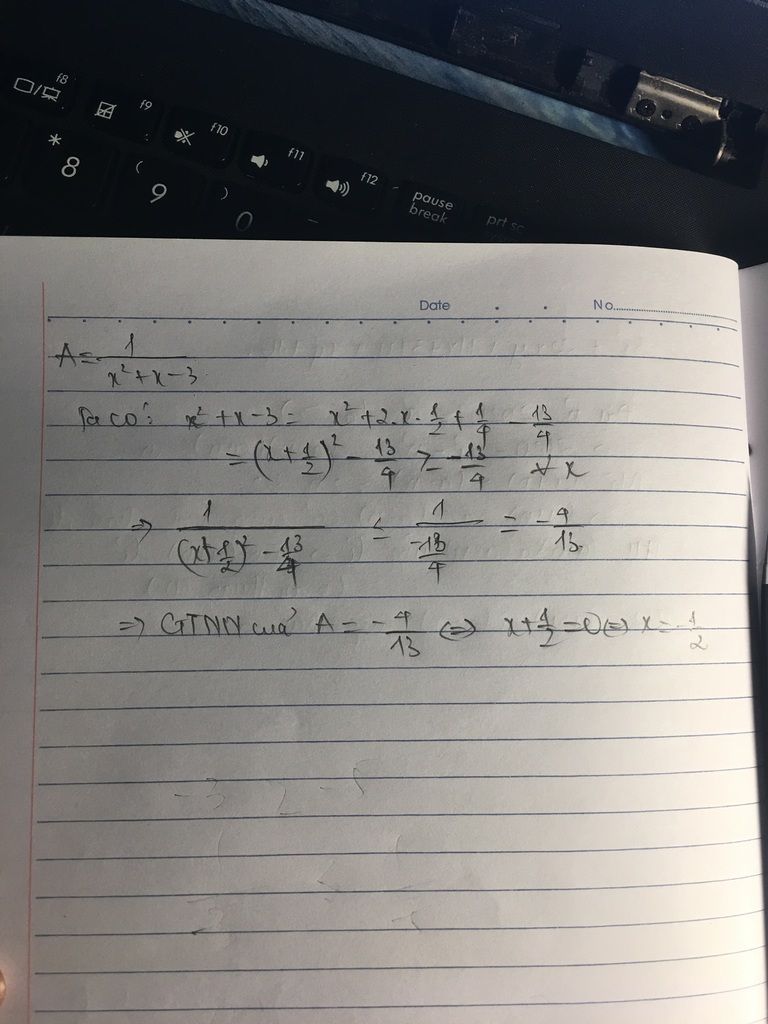 f8
f9
f10
f11
f12
*
8
(
9
)
0
pause
break
prt sc
Date
No
A = 1/(x² + x - 3)
Ta có: x² + x - 3 = x² + 2.x.1/2 + 1/4 - 13/4
= (x + 1/2)² - 13/4 ≥ -13/4 ∀ x
⇒ 1/((x + 1/2)² - 13/4) ≤ 1/(-13/4) = -4/13
⇒ GTNN của A = -4/13 ⇔ x + 1/2 = 0 ⇔ x = -1/2